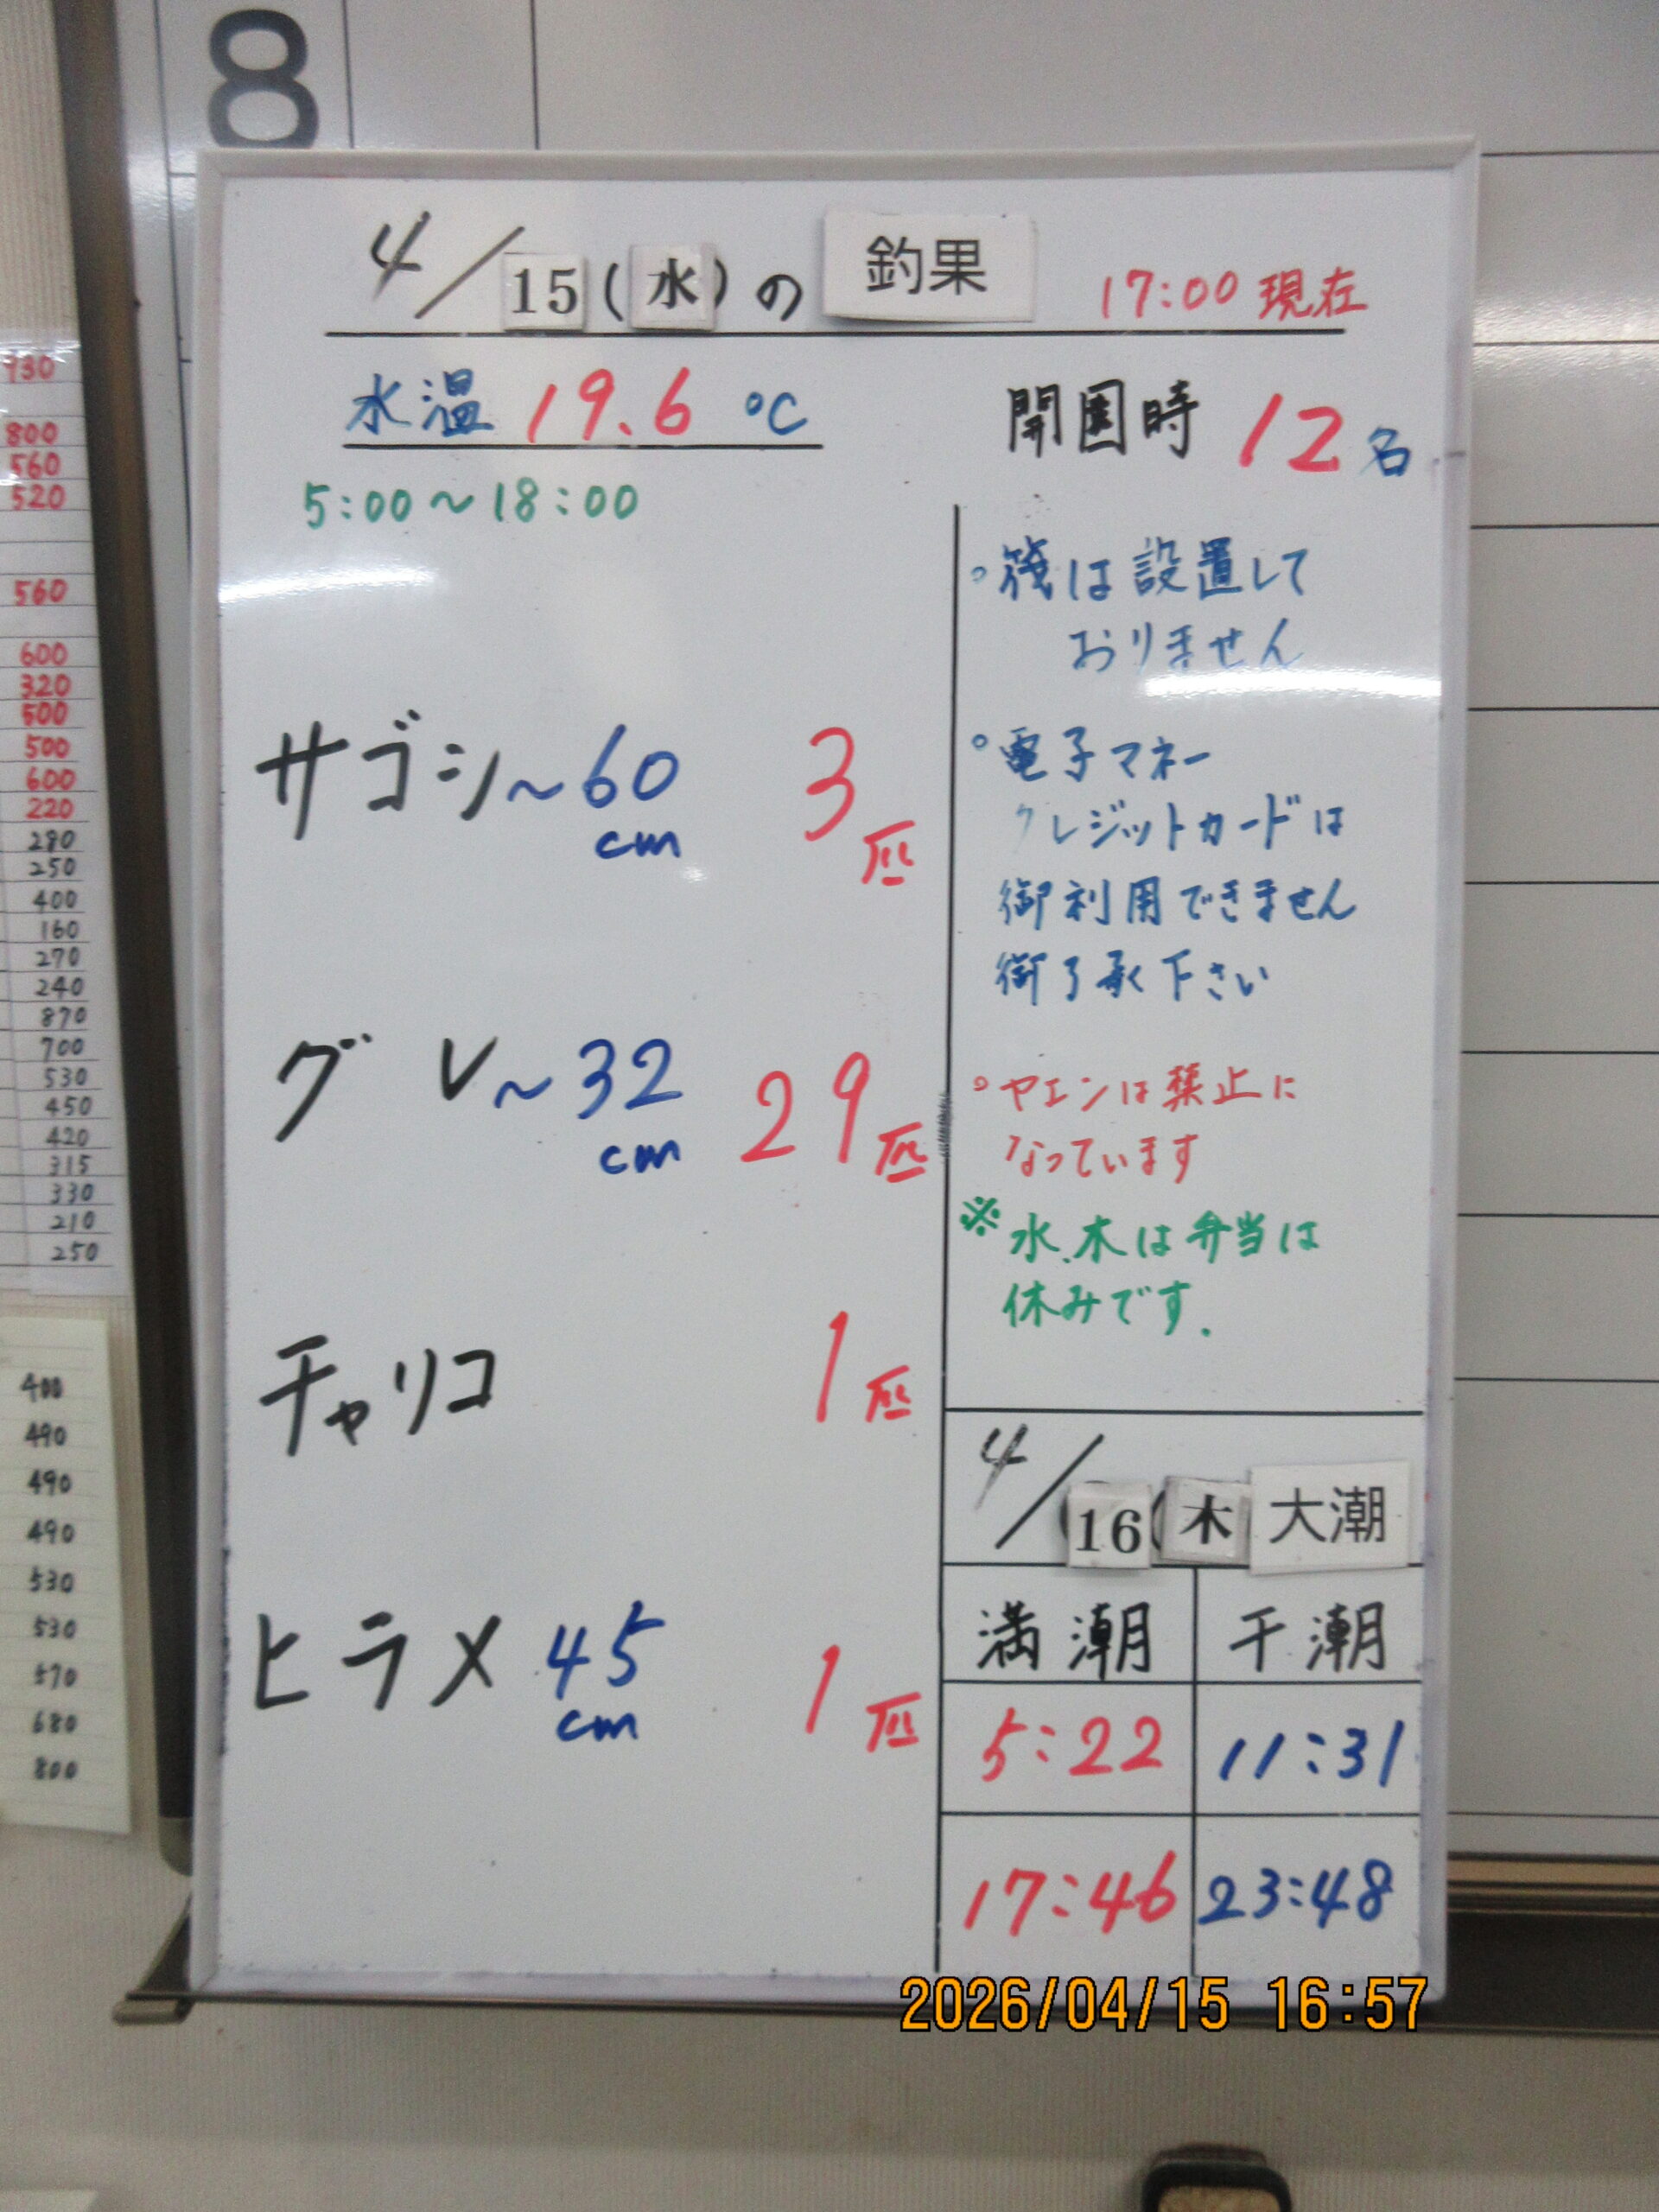 8
4/15(水)の 釣果 17:00現在
水温 19.6 ℃ 開園時 12名
5:00〜18:00
サゴシ〜60cm 3匹
グレ〜32cm 29匹
チャリコ 1匹
ヒラメ 45cm 1匹
◦筏は設置して
おりません
◦電子マネー
クレジットカードは
御利用できません
御了承下さい
◦ヤエンは禁止に
なっています
※水.木は弁当は
休みです.
4/16(木 大潮
満潮 干潮
5:22 11:31
17:46 23:48
930
800
560
520
560
600
320
500
500
600
220
280
250
400
160
270
240
870
700
530
450
420
315
330
210
250
400
490
490
490
530
530
570
680
800
2026/04/15 16:57